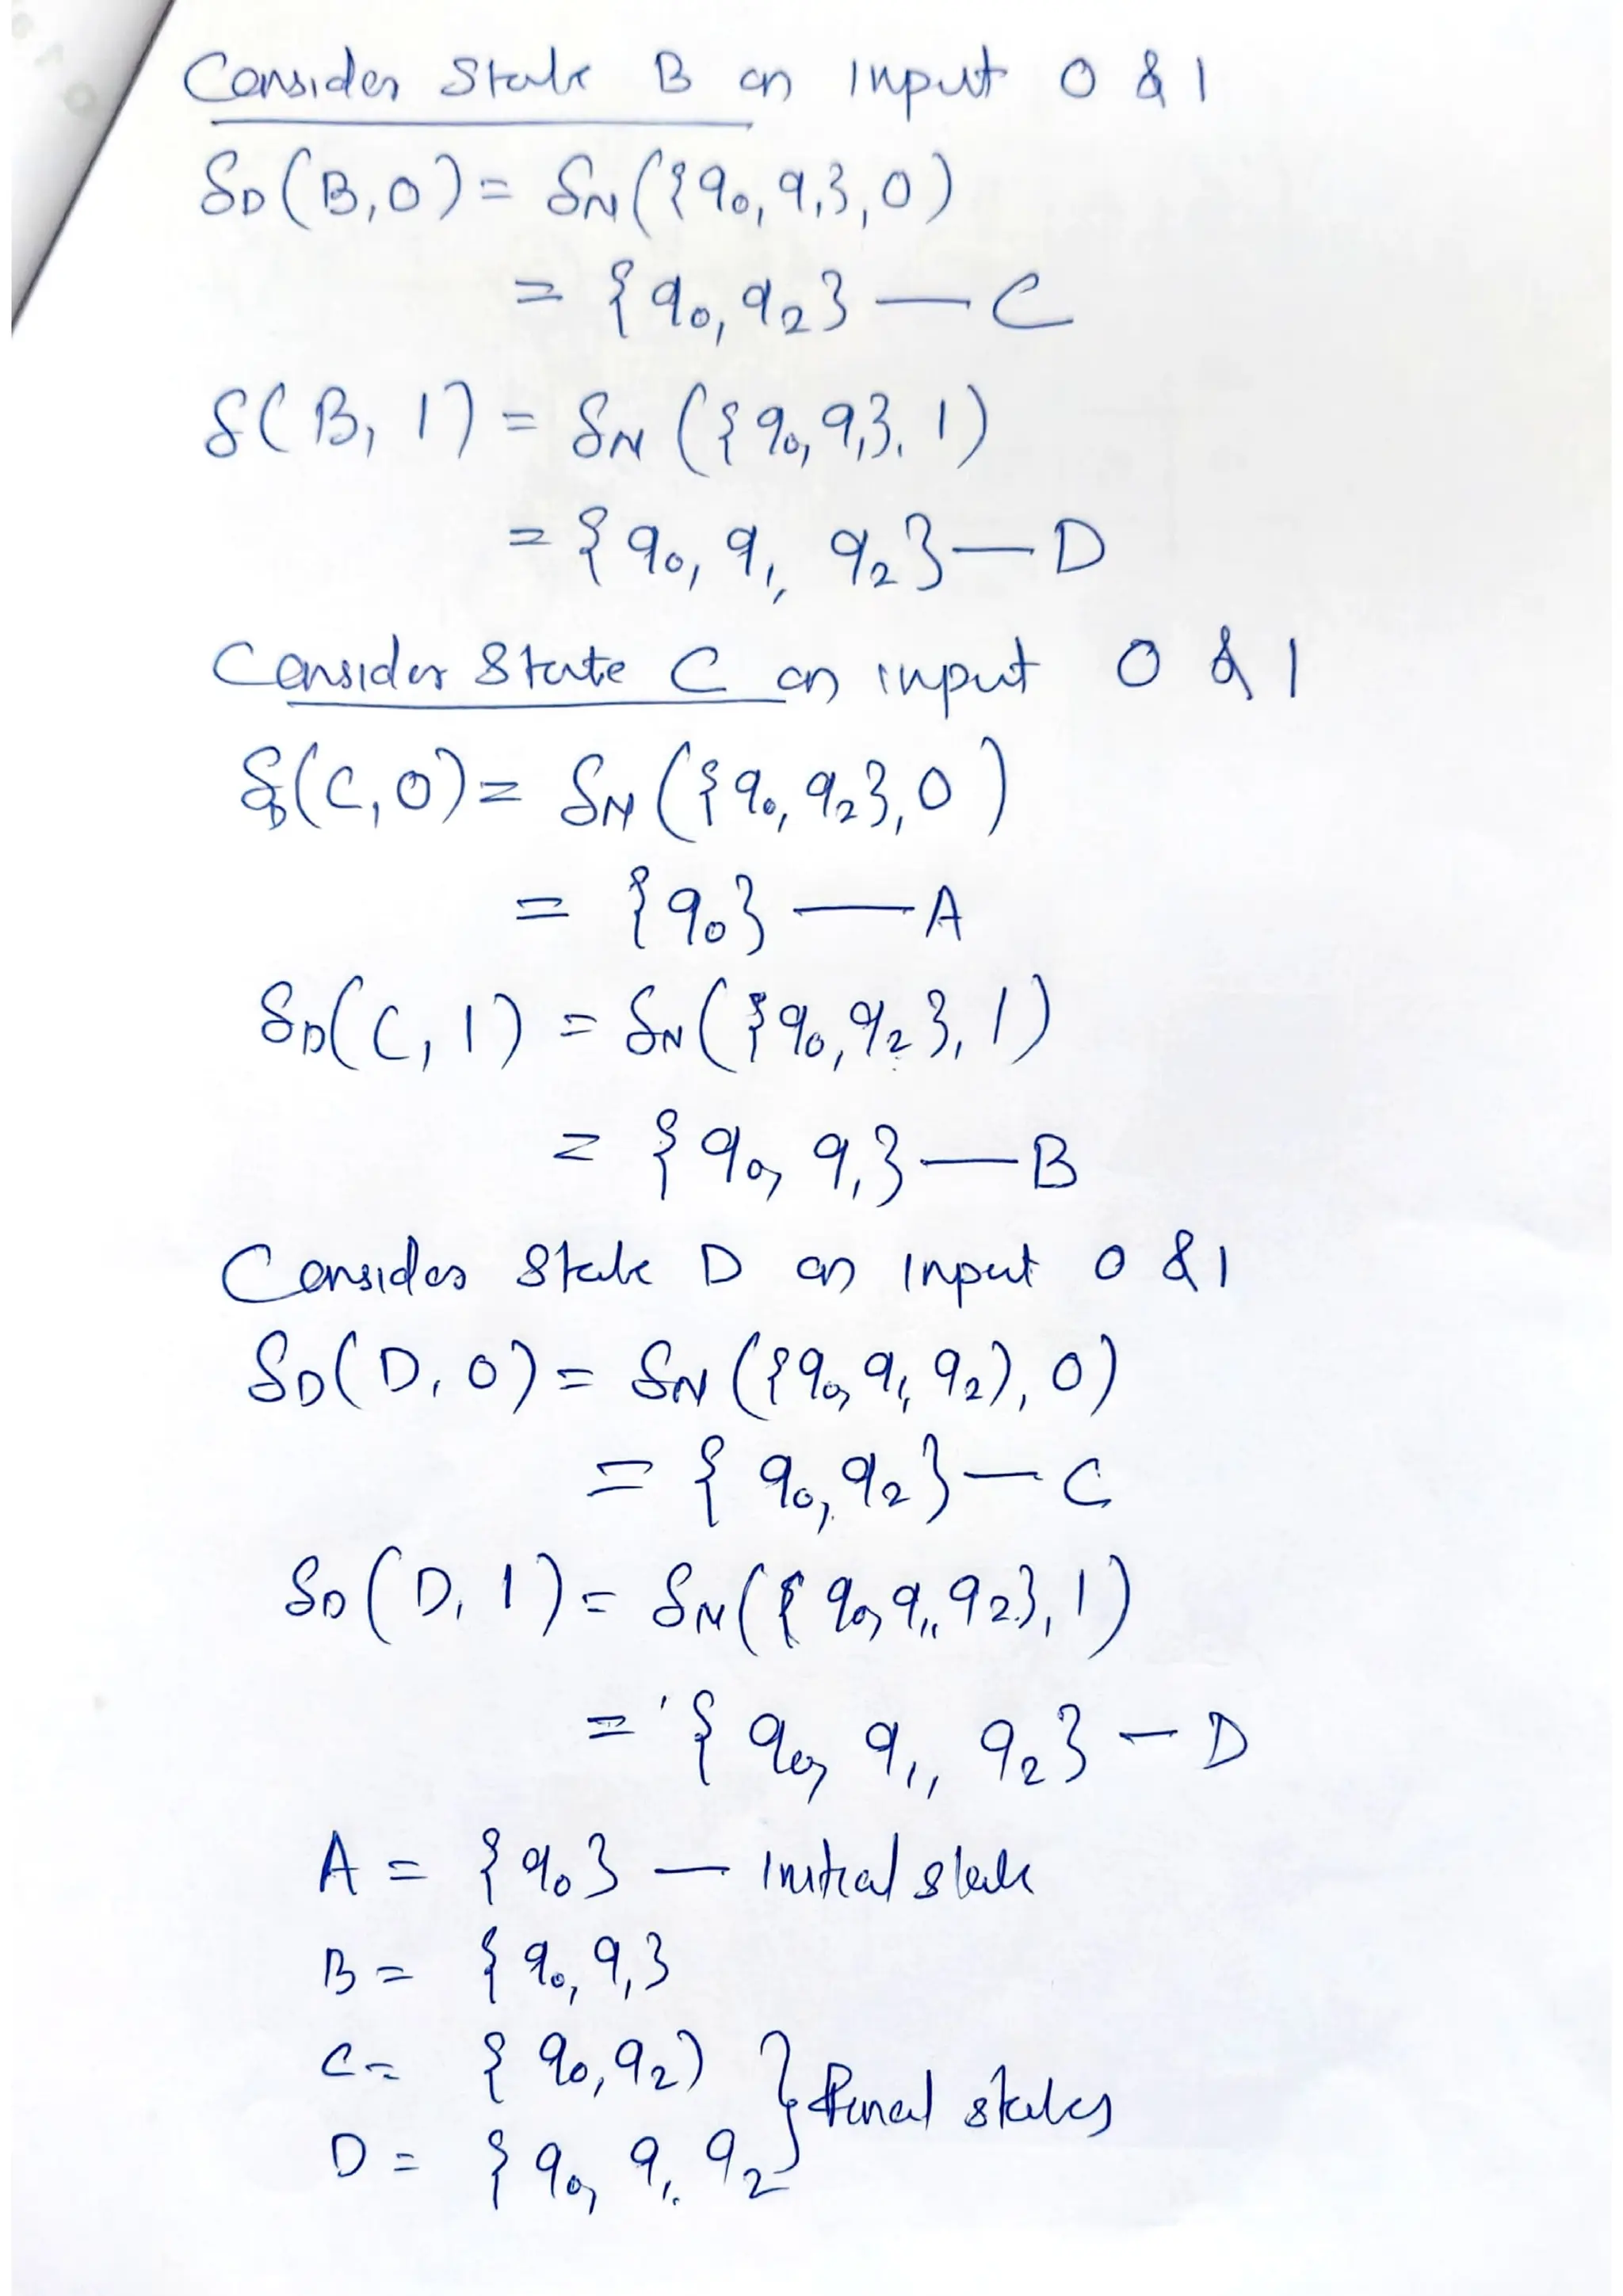 Consider State B on Input 0 & 1
δD(B,0) = δN({q0, q1}, 0)
= {q0, q2} — C
δ(B, 1) = δN ({q0, q1}, 1)
= {q0, q1, q2} — D
Consider State C on input 0 & 1
δD(C,0) = δN ({q0, q2}, 0)
= {q0} — A
δD(C, 1) = δN({q0, q2}, 1)
= {q0, q1} — B
Consider State D on Input 0 & 1
δD(D, 0) = δN ({q0, q1, q2), 0)
= {q0, q2} — C
δD(D, 1) = δN({q0, q1, q2}, 1)
= {q0, q1, q2} — D
A = {q0} — Initial state
B = {q0, q1}
C = {q0, q2) } Final states
D = {q0, q1, q2